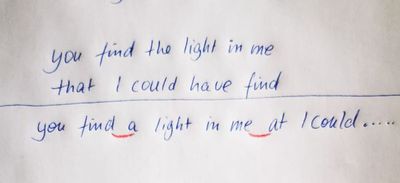 you find the light in me
that I could have find
you find a light in me at I could.....